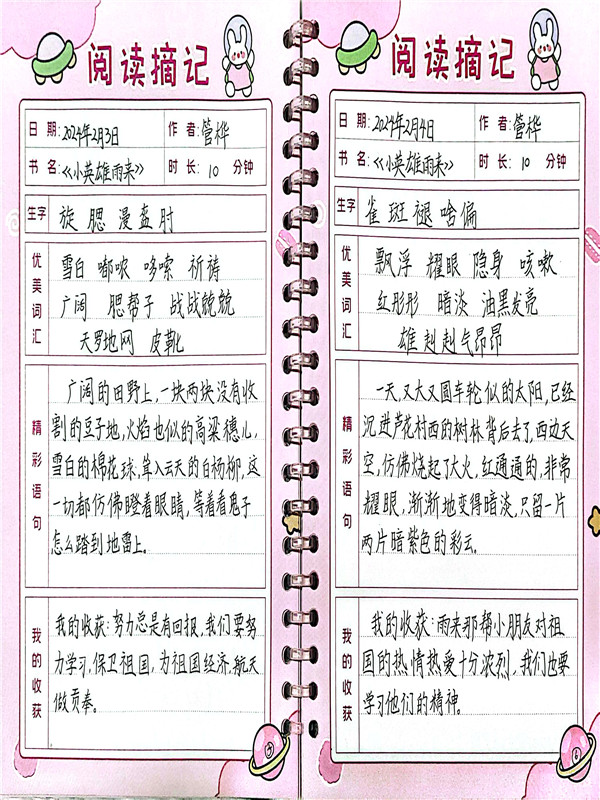 阅读摘记
日期:2024年2月3日 作者:管桦
书名:《小英雄雨来》 时长:10分钟
生字 旋 腮 漫 盔 肘
优美词汇
雪白 嘟哝 哆嗦 祈祷
广阔 腮帮子 战战兢兢
天罗地网 皮靴
精彩语句
广阔的田野上,一块两块没有收
割的豆子地,火焰也似的高粱穗儿,
雪白的棉花球,耸入云天的白杨柳,这
一切都仿佛瞪着眼睛,等着看鬼子
怎么踏到地雷上。
我的收获
我的收获:努力总是有回报,我们要努
力学习,保卫祖国,为祖国经济,航天
做贡奉。
5
阅读摘记
日期:2024年2月4日 作者:管桦
书名:《小英雄雨来》 时长:10分钟
生字 雀 斑 褪 啥 偏
优美词汇
飘浮 耀眼 隐身 咳嗽
红彤彤 暗淡 油黑发亮
雄赳赳气昂昂
精彩语句
一天,又大又圆车轮似的太阳,已经
沉进芦花村西的树林背后去了,西边天
空,仿佛烧起了大火,红通通的,非常
耀眼,渐渐地变得暗淡,只留一片
两片暗紫色的彩云。
我的收获
我的收获:雨来那帮小朋友对祖
国的热情热爱十分浓烈,我们也要
学习他们的精神。
6